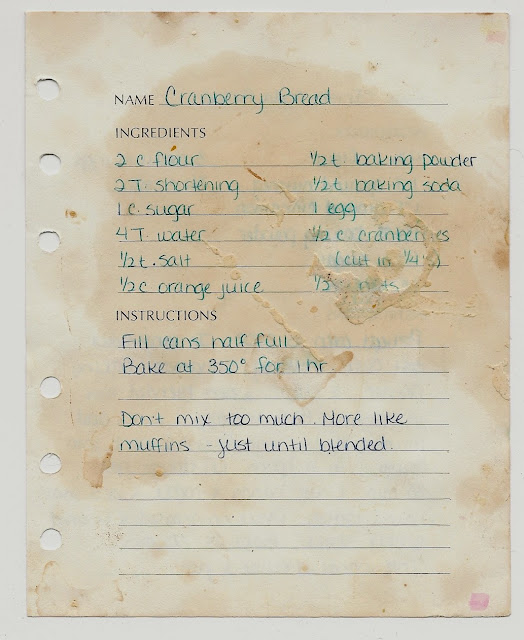 NAME Cranberry Bread
INGREDIENTS
2 c. flour ½ t. baking powder
2 T. shortening ½ t. baking soda
1 c. sugar 1 egg
4 T. water ½ c. cranberries
½ t. salt (cut in ¼'s)
½ c orange juice nuts
INSTRUCTIONS
Fill cans half full.
Bake at 350° for 1 hr.
Don't mix too much. More like
muffins - just until blended.